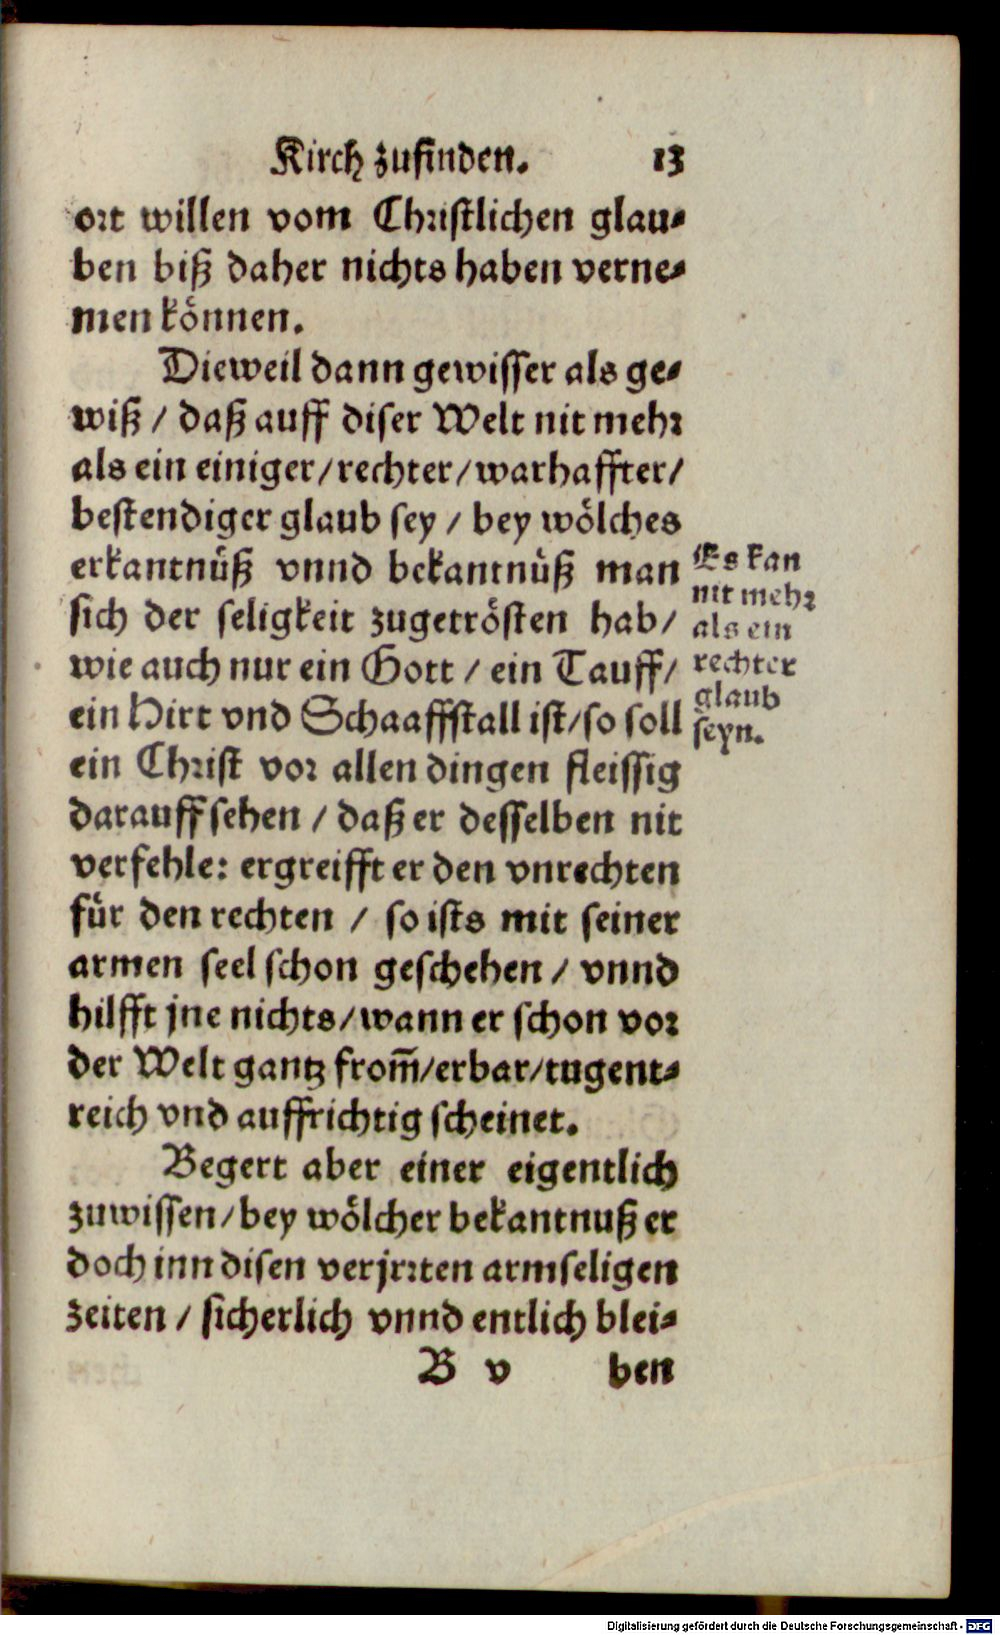 Kirch zufinden. 13
ort willen vom Christlichen glau-
ben biß daher nichts haben verne-
men können.
Dieweil dann gewisser als ge-
wiß / daß auff diser Welt nit mehr
als ein einiger / rechter / warhaffter /
bestendiger glaub sey / bey wölches
erkantnüß vnnd bekantnüß man
sich der seligkeit zugetrösten hab /
wie auch nur ein Gott / ein Tauff /
ein Hirt vnd Schaaffstall ist / so soll
ein Christ vor allen dingen fleissig
darauff sehen / daß er desselben nit
verfehle: ergreifft er den vnrechten
für den rechten / so ists mit seiner
armen seel schon geschehen / vnnd
hilfft jne nichts / wann er schon vor
der Welt gantz from̃ / erbar / tugent-
reich vnd auffrichtig scheinet.
Begert aber einer eigentlich
zuwissen / bey wölcher bekantnuß er
doch inn disen verjrrten armseligen
zeiten / sicherlich vnnd entlich blei-
B v ben
Es kan
nit mehr
als ein
rechter
glaub
seyn.
Digitalisierung gefördert durch die Deutsche Forschungsgemeinschaft - DFG